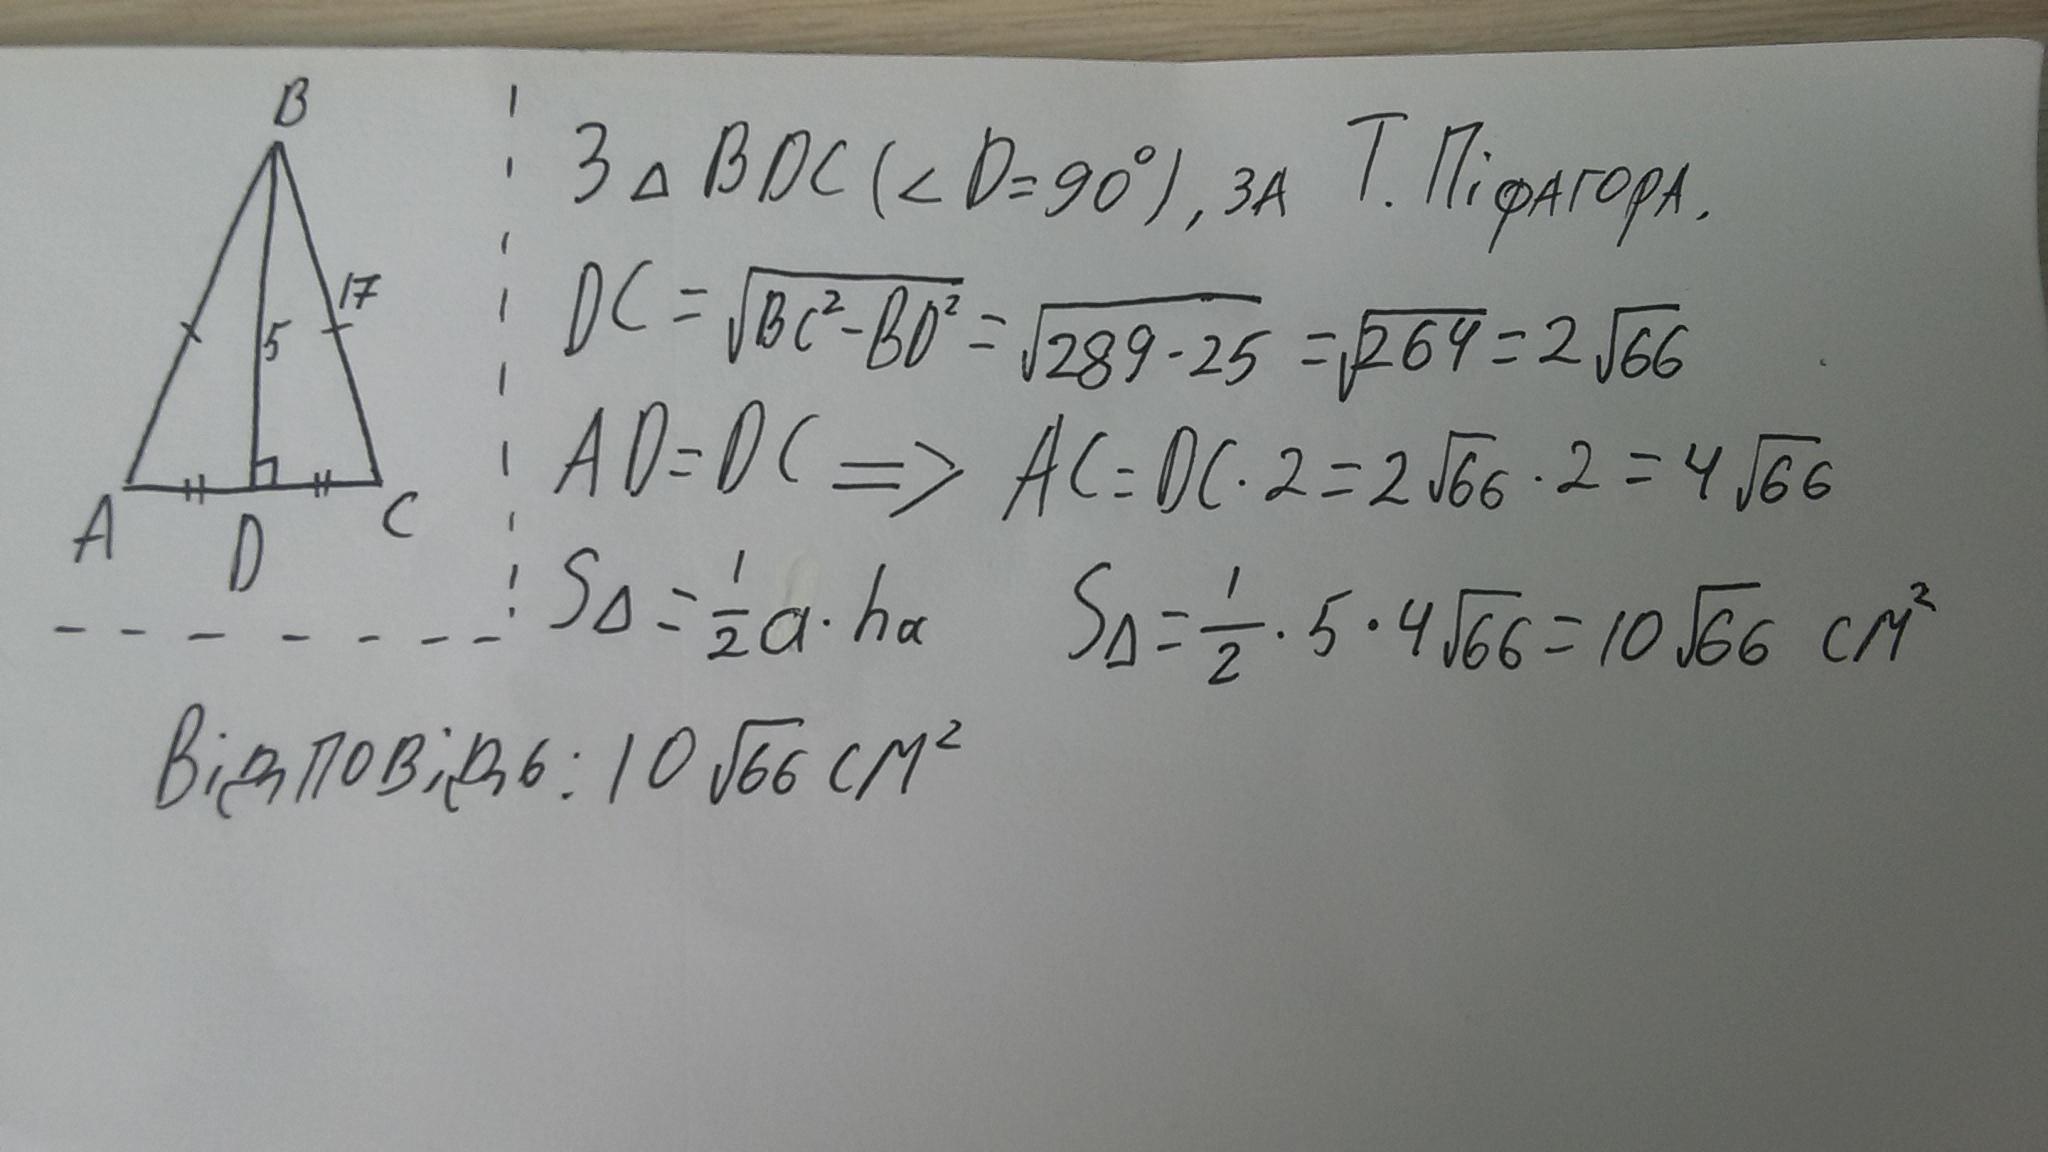 B
17
5
A
D
C
З △ BDC (< D=90°), за Т. Піфагора.
DC = √BC²-BD² = √289-25 = √264 = 2√66
AD=DC => AC=DC·2=2√66·2=4√66
S△=1/2a·ha S△=1/2·5·4√66=10√66 см²
Відповідь: 10√66 см²